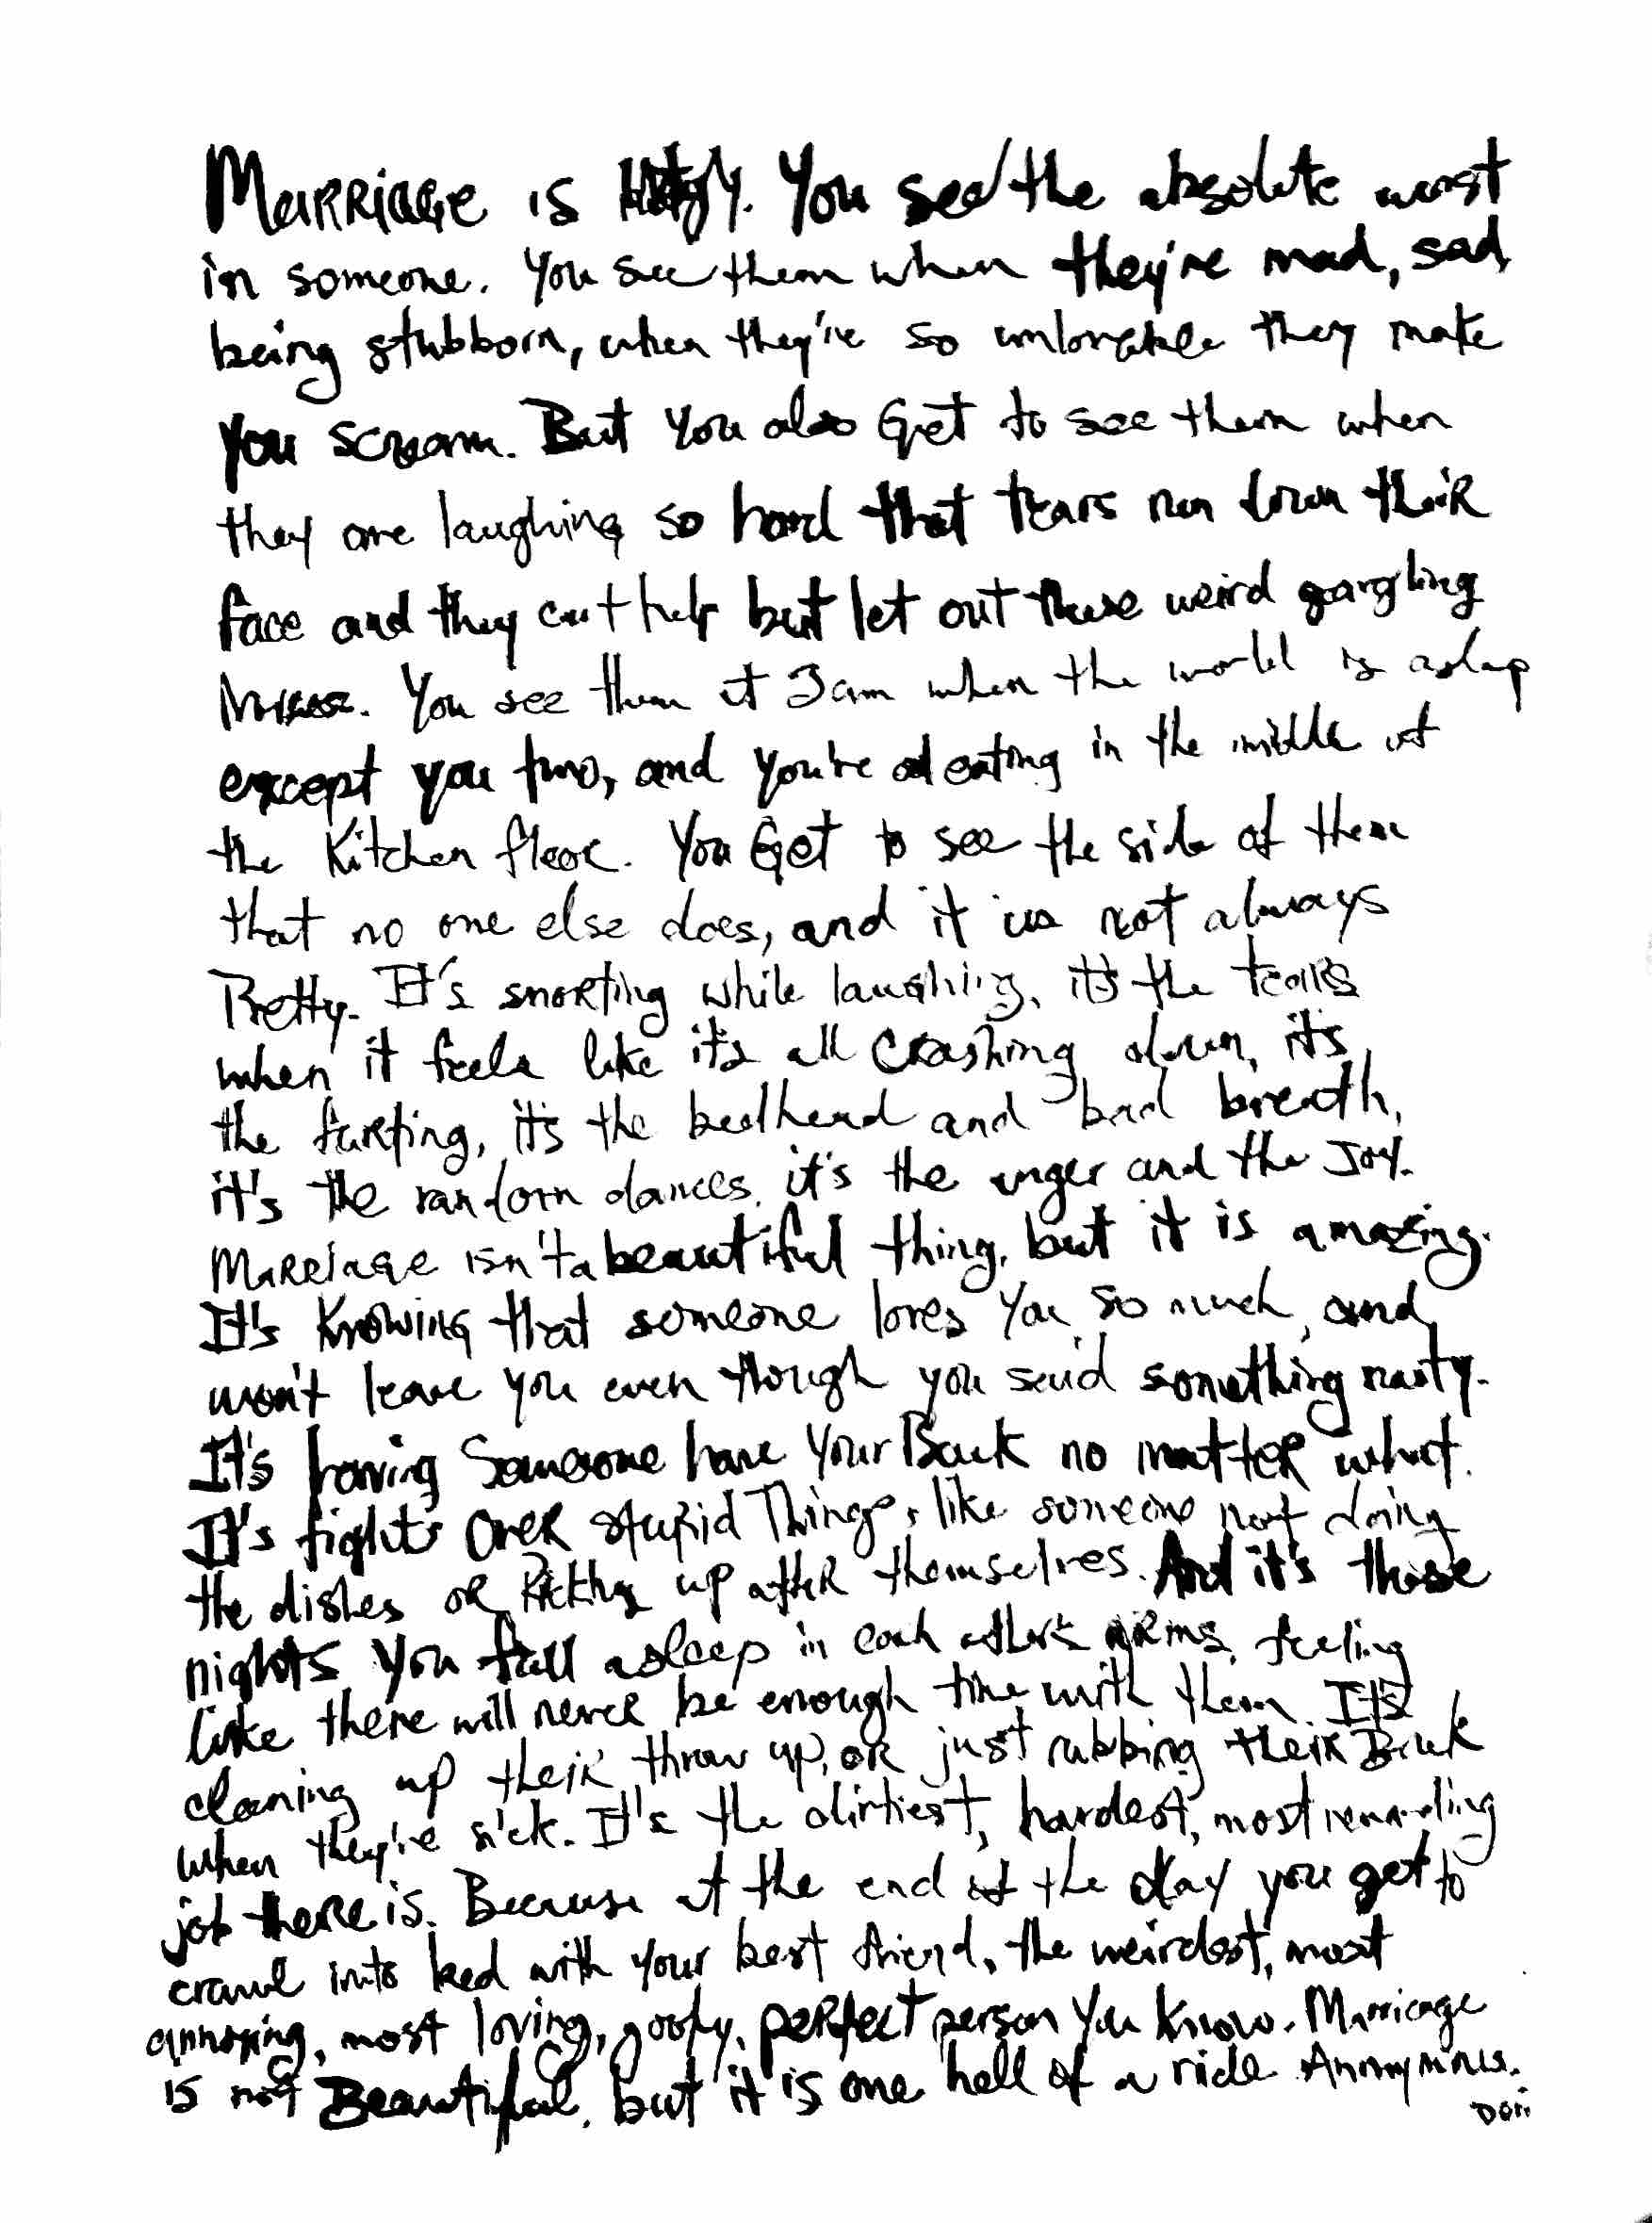 Marriage is Ugly. You see the absolute worst
in someone. You see them when they're mad, sad,
being stubborn, when they're so unlovable they make
you scream. But you also Get to see them when
they are laughing so hard that tears run down their
face and they can't help but let out these weird gargling
Noises. You see them at 3am when the world is asleep
except you two, and you're eating in the middle of
the Kitchen floor. You Get to see the side of them
that no one else does, and it is not always
Pretty. It's snorting while laughing, it's the tears
when it feels like it's all Crashing down, it's
the farting, it's the bedhead and bad breath,
it's the random dances, it's the anger and the Joy.
Marriage isn't a beautiful thing, but it is amazing.
It's Knowing that someone loves You so much, and
won't leave you even though you said something nasty.
It's having Someone have Your Back no matter what.
It's fights Over stupid Things, like someone not doing
the dishes or Picking up after themselves. And it's those
nights You fall asleep in each other's arms, feeling
like there will never be enough time with them. It's
cleaning up their throw up, or just rubbing their Back
when they're sick. It's the dirtiest, hardest, most rewarding
job there is. Because at the end of the day you get to
crawl into bed with your best friend, the weirdest, most
annoying, most loving, goofy, perfect person You Know. Marriage
is not Beautiful, but it is one hell of a ride. Anonymous.